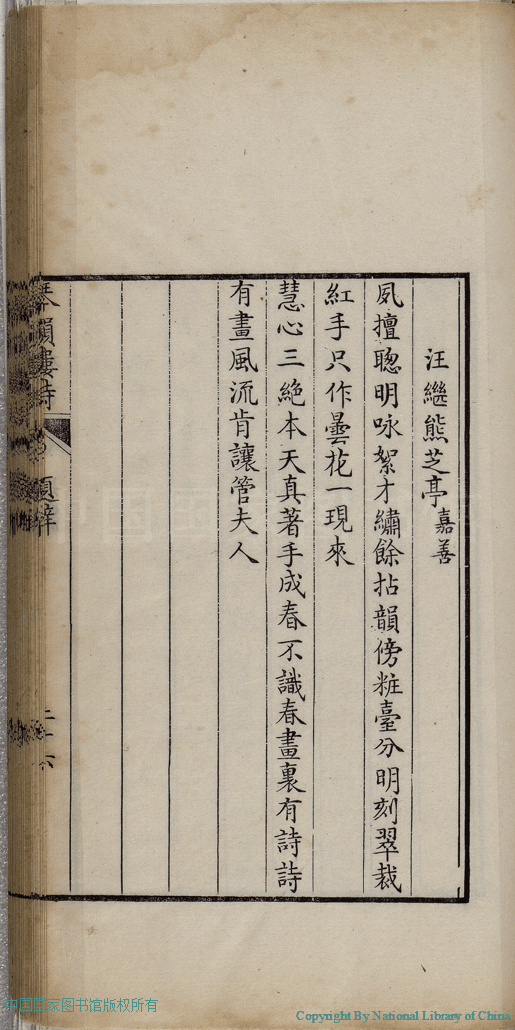 汪繼熊芝亭嘉善
夙擅聰明咏絮才繡餘拈韻傍粧臺分明刻翠裁
紅手只作曇花一現來
慧心三絶本天真著手成春不識春畫裏有詩詩
有畫風流肯讓管夫人
韻樓詩
題辭
中国国家图书馆版权所有
Copyright By National Library of China